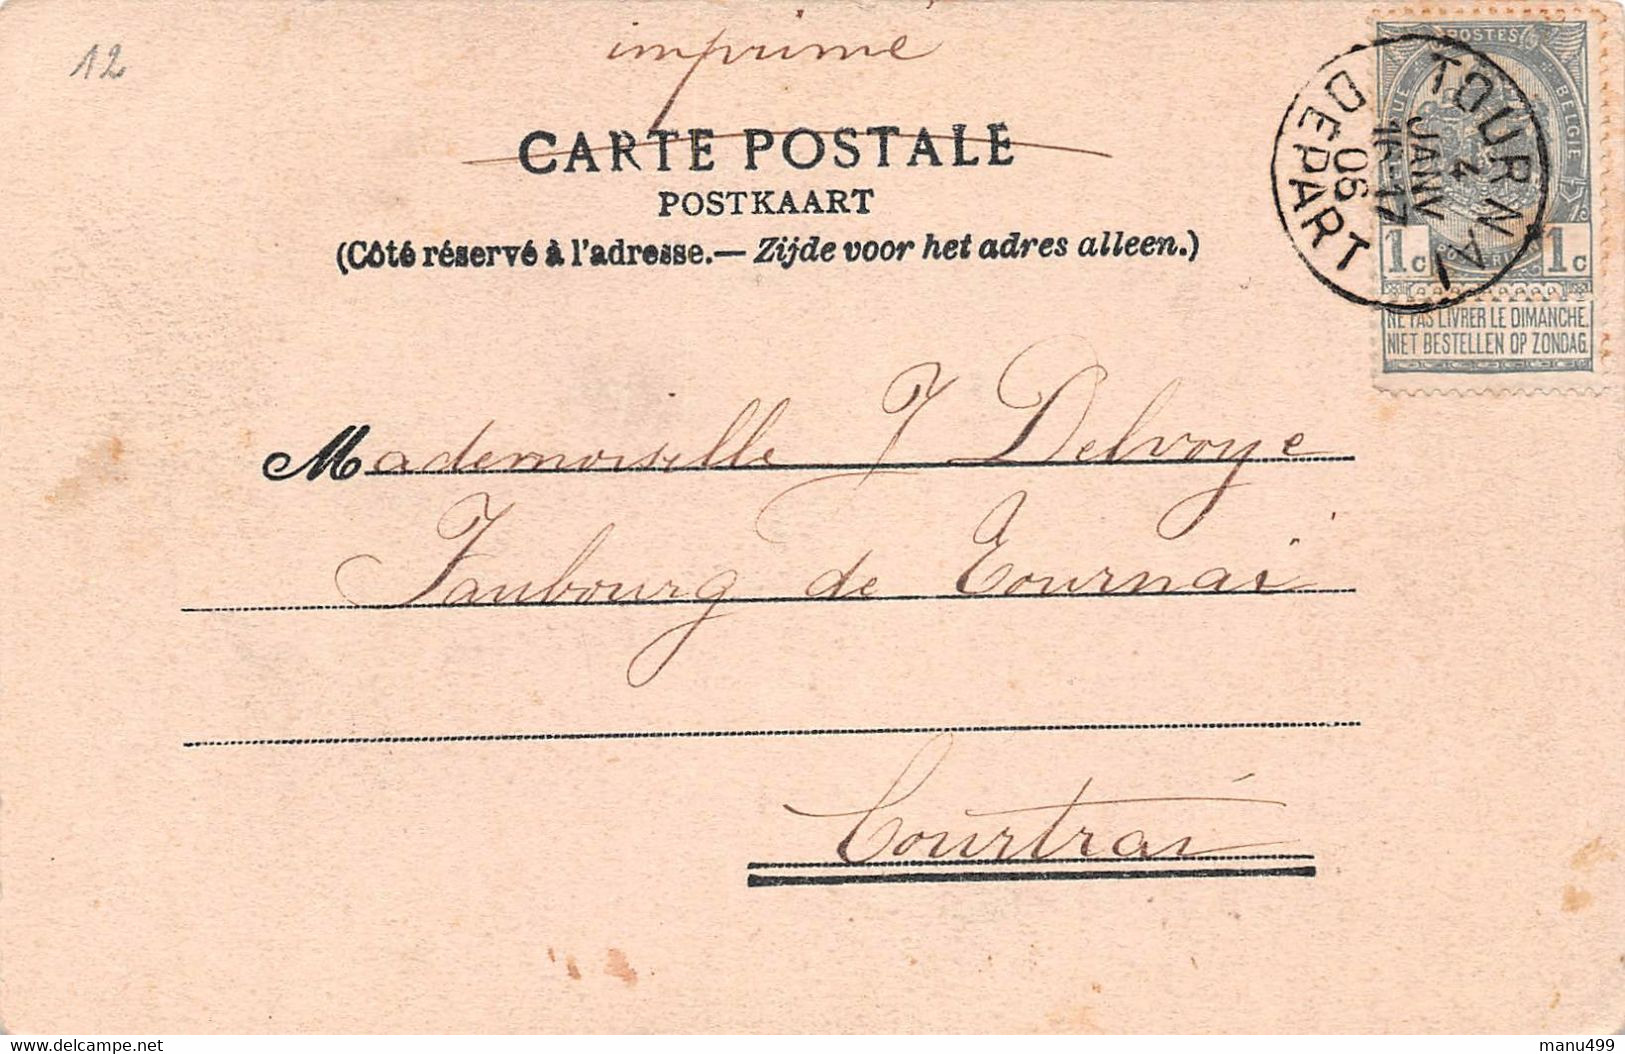 12
imprimé
CARTE POSTALE
POSTKAART
(Côté réservé à l'adresse.— Zijde voor het adres alleen.)
POSTES
BELGIE
1c 1c
NE PAS LIVRER LE DIMANCHE.
NIET BESTELLEN OP ZONDAG.
TOURNAI
4
JANV
16-17
06
DEPART
Mademoiselle J Delvoye
Faubourg de Tournai
Courtrai
manu499